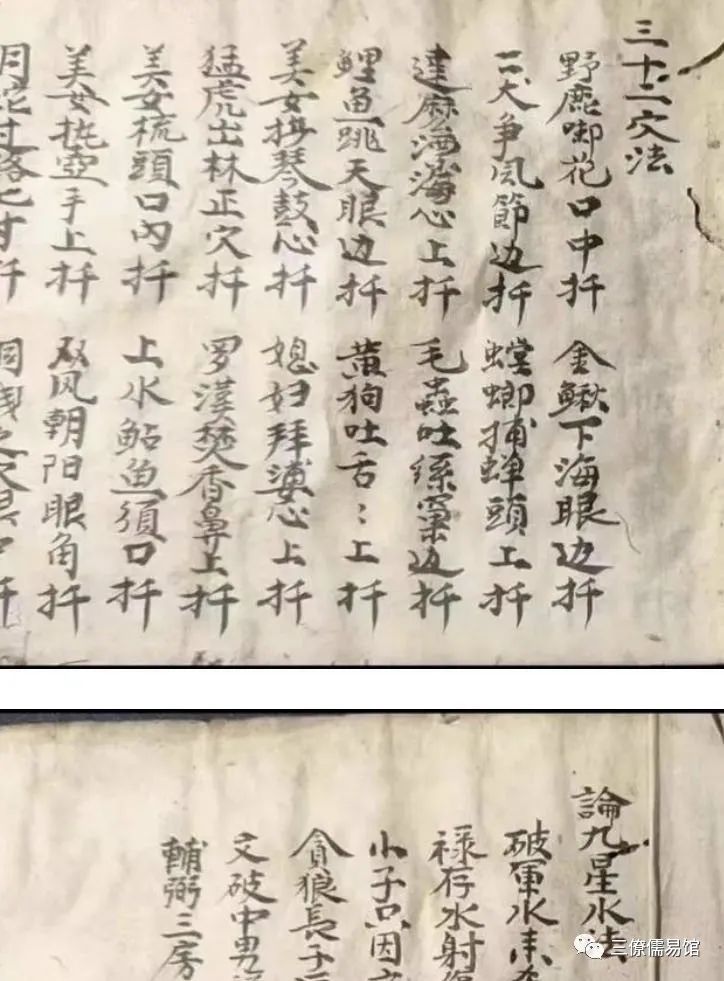 三十二穴法
野鹿啣花口中扦 金鳅下海眼边扦
二犬争风節边扦 螳螂捕蝉頭上扦
達麽海心上扦 毛蟲吐絲窠边扦
鯉魚跳天眼边扦 黄狗吐舌:上扦
美女捬琴鼓心扦 媳妇拜婆心上扦
猛虎出林正穴扦 罗漢焚香鼻上扦
美女梳頭口内扦 上水鮎魚須口扦
美女执壺手上扦 双凤朝阳眼角扦
過路七寸扦
論九星水法
破軍水来
禄存水射
小子只因
貪狼長子
文破中男
輔弼三房
三僚儒易馆